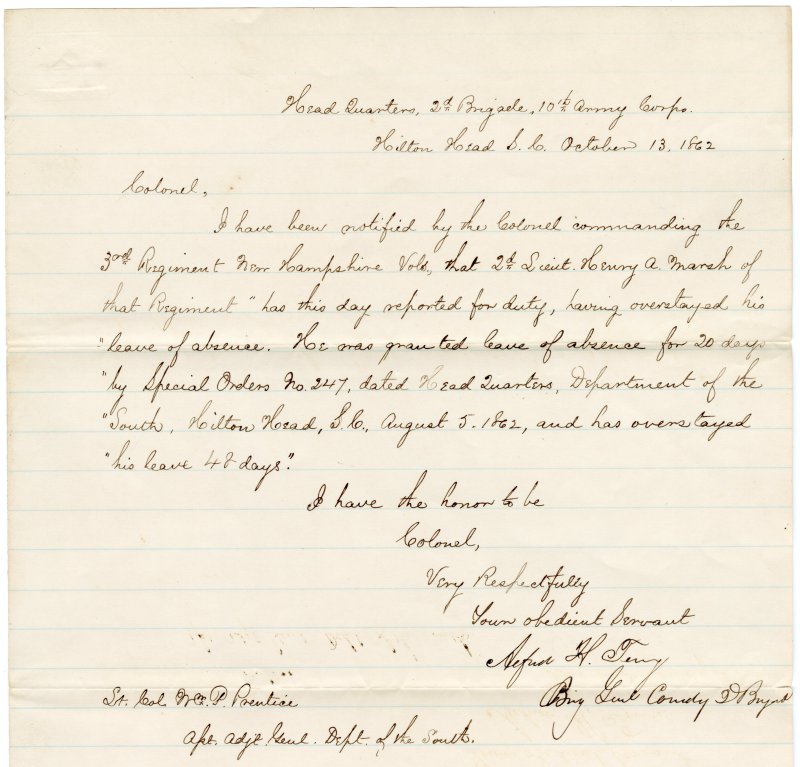 Head Quarters, 2d Brigade, 10th Army Corps.
Hilton Head S. C. October 13, 1862
Colonel,
I have been notified by the Colonel commanding the
3rd Regiment New Hampshire Vols, that 2d Lieut. Henry A. Marsh of
that Regiment "has this day reported for duty, having overstayed his
"leave of absence. He was granted leave of absence for 20 days
"by Special Orders No. 247, dated Head Quarters, Department of the
"South, Hilton Head, S. C., August 5. 1862, and has overstayed
"his leave 48 days".
I have the honor to be
Colonel,
Very Respectfully
Your obedient Servant
Alfred H. Terry
Brig Genl Comdg 2d Brigd
Lt. Col. Wm. P. Prentice
Asst. Adjt. Genl. Dept. of the South.